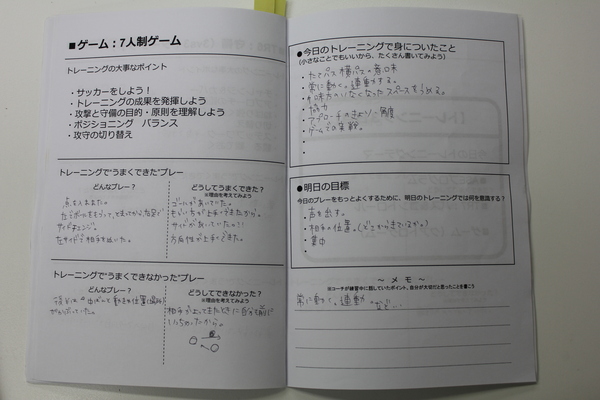 ■ゲーム：7人制ゲーム
トレーニングの大事なポイント
・サッカーをしよう！
・トレーニングの成果を発揮しよう
・攻撃と守備の目的・原則を理解しよう
・ポジショニング　バランス
・攻守の切り替え
トレーニングで“うまくできた”プレー
どんなプレー？
どうしてうまくできた？
※理由を考えてみよう
点を入れた。
サイドチェンジ。
ゴールがあいていた。
サイドがあいていた
方向性が上手くできた。
トレーニングで“うまくできなかった”プレー
どんなプレー？
どうしてできなかった？
※理由を考えてみよう
相手が上ってきたときに自分も前に
いっちゃったから。
●今日のトレーニングで身についたこと
(小さなことでもいいから、たくさん書いてみよう)
・たてパス 横パスの意味
・常に動く。連動する。
・味方のいなくなったスペースをうめる。
・協力
・アプローチのきょり・角度
・ゲームでの実戦。
●明日の目標
今日のプレーをもっとよくするために、明日のトレーニングでは何を意識する？
・声を出す。
・相手の位置。(どこからきているか。)
～ メ モ ～
※コーチが練習中に話していたポイント、自分が大切だと思ったことを書こう
常に動く。連動 など…